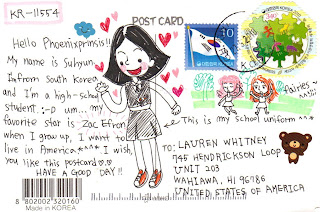 KR-11554
POST CARD
Hello Phoenixprmsis!!
My name is Suhyun.
I'm from South Korea
and I'm a high-school
student ;-D um... my
favorite star is Zac Efron
when I grow up, I want to
live in America. I wish,
you like this postcard
HAVE A GOOD DAY!!
Fairies~
This is my school uniform ^^
TO: LAUREN WHITNEY
745 HENDRICKSON LOOP
UNIT 203
WAHIAWA, HI 96786
UNITED STATES OF AMERICA
8 802002 320160
Made in KOREA